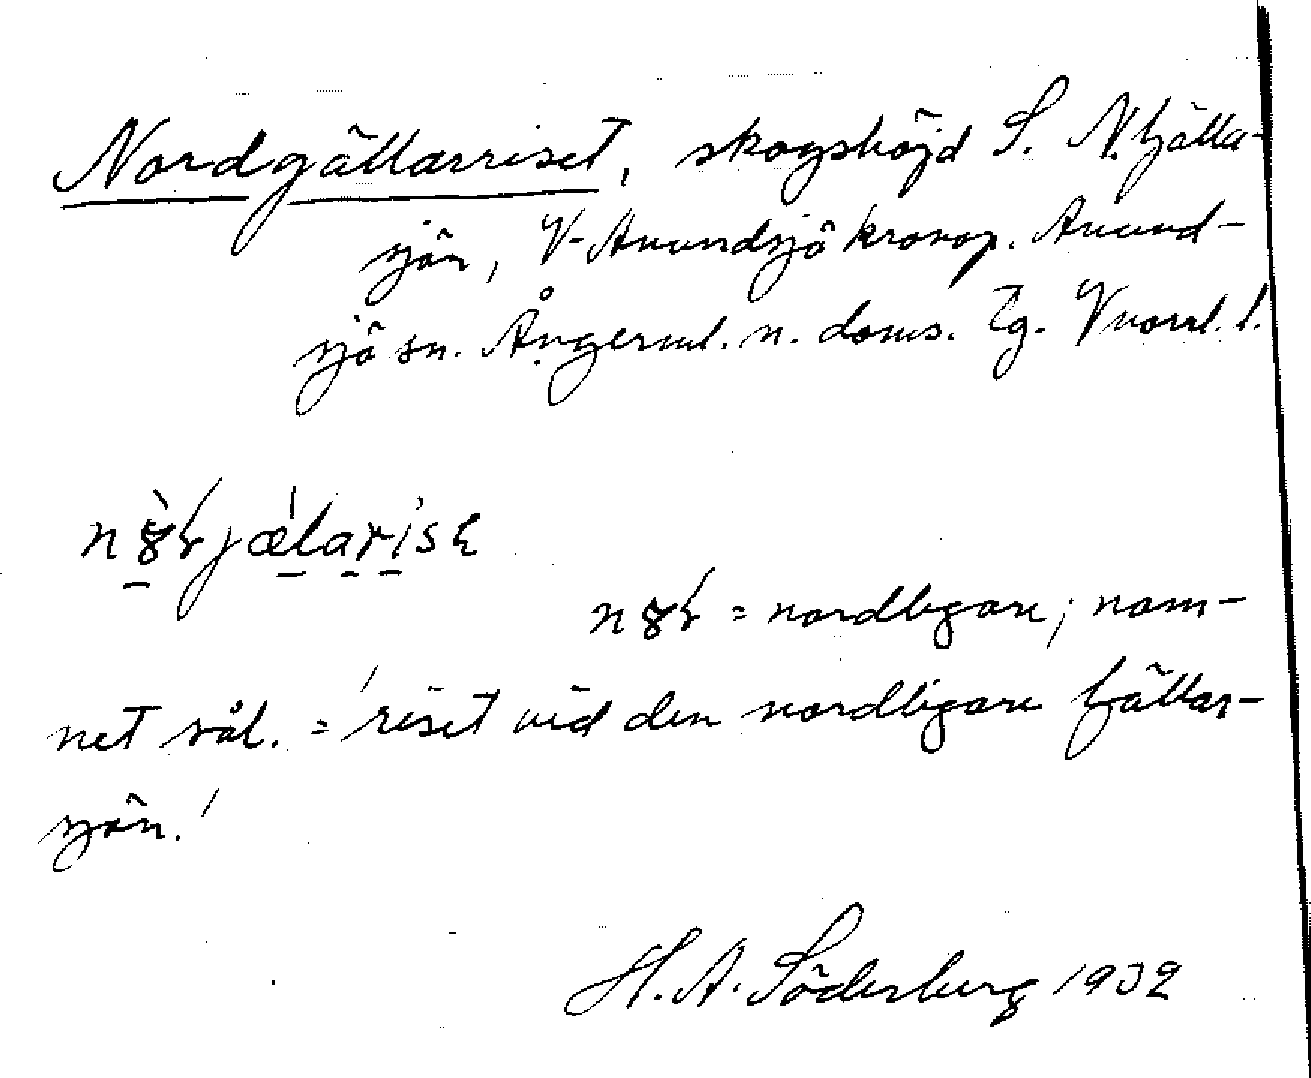 Nordgällarriset, skogshöjd S. N. Gälla-
sjön, V-Anundsjö kronop. Anund-
sjö sn. Ångerml. n. doms. Tg. Vnorrl. l.
nordligare; nam-
net sål. = 'riset vid den nordligare Gällar-
sjön.'
H. A. Söderberg 1932